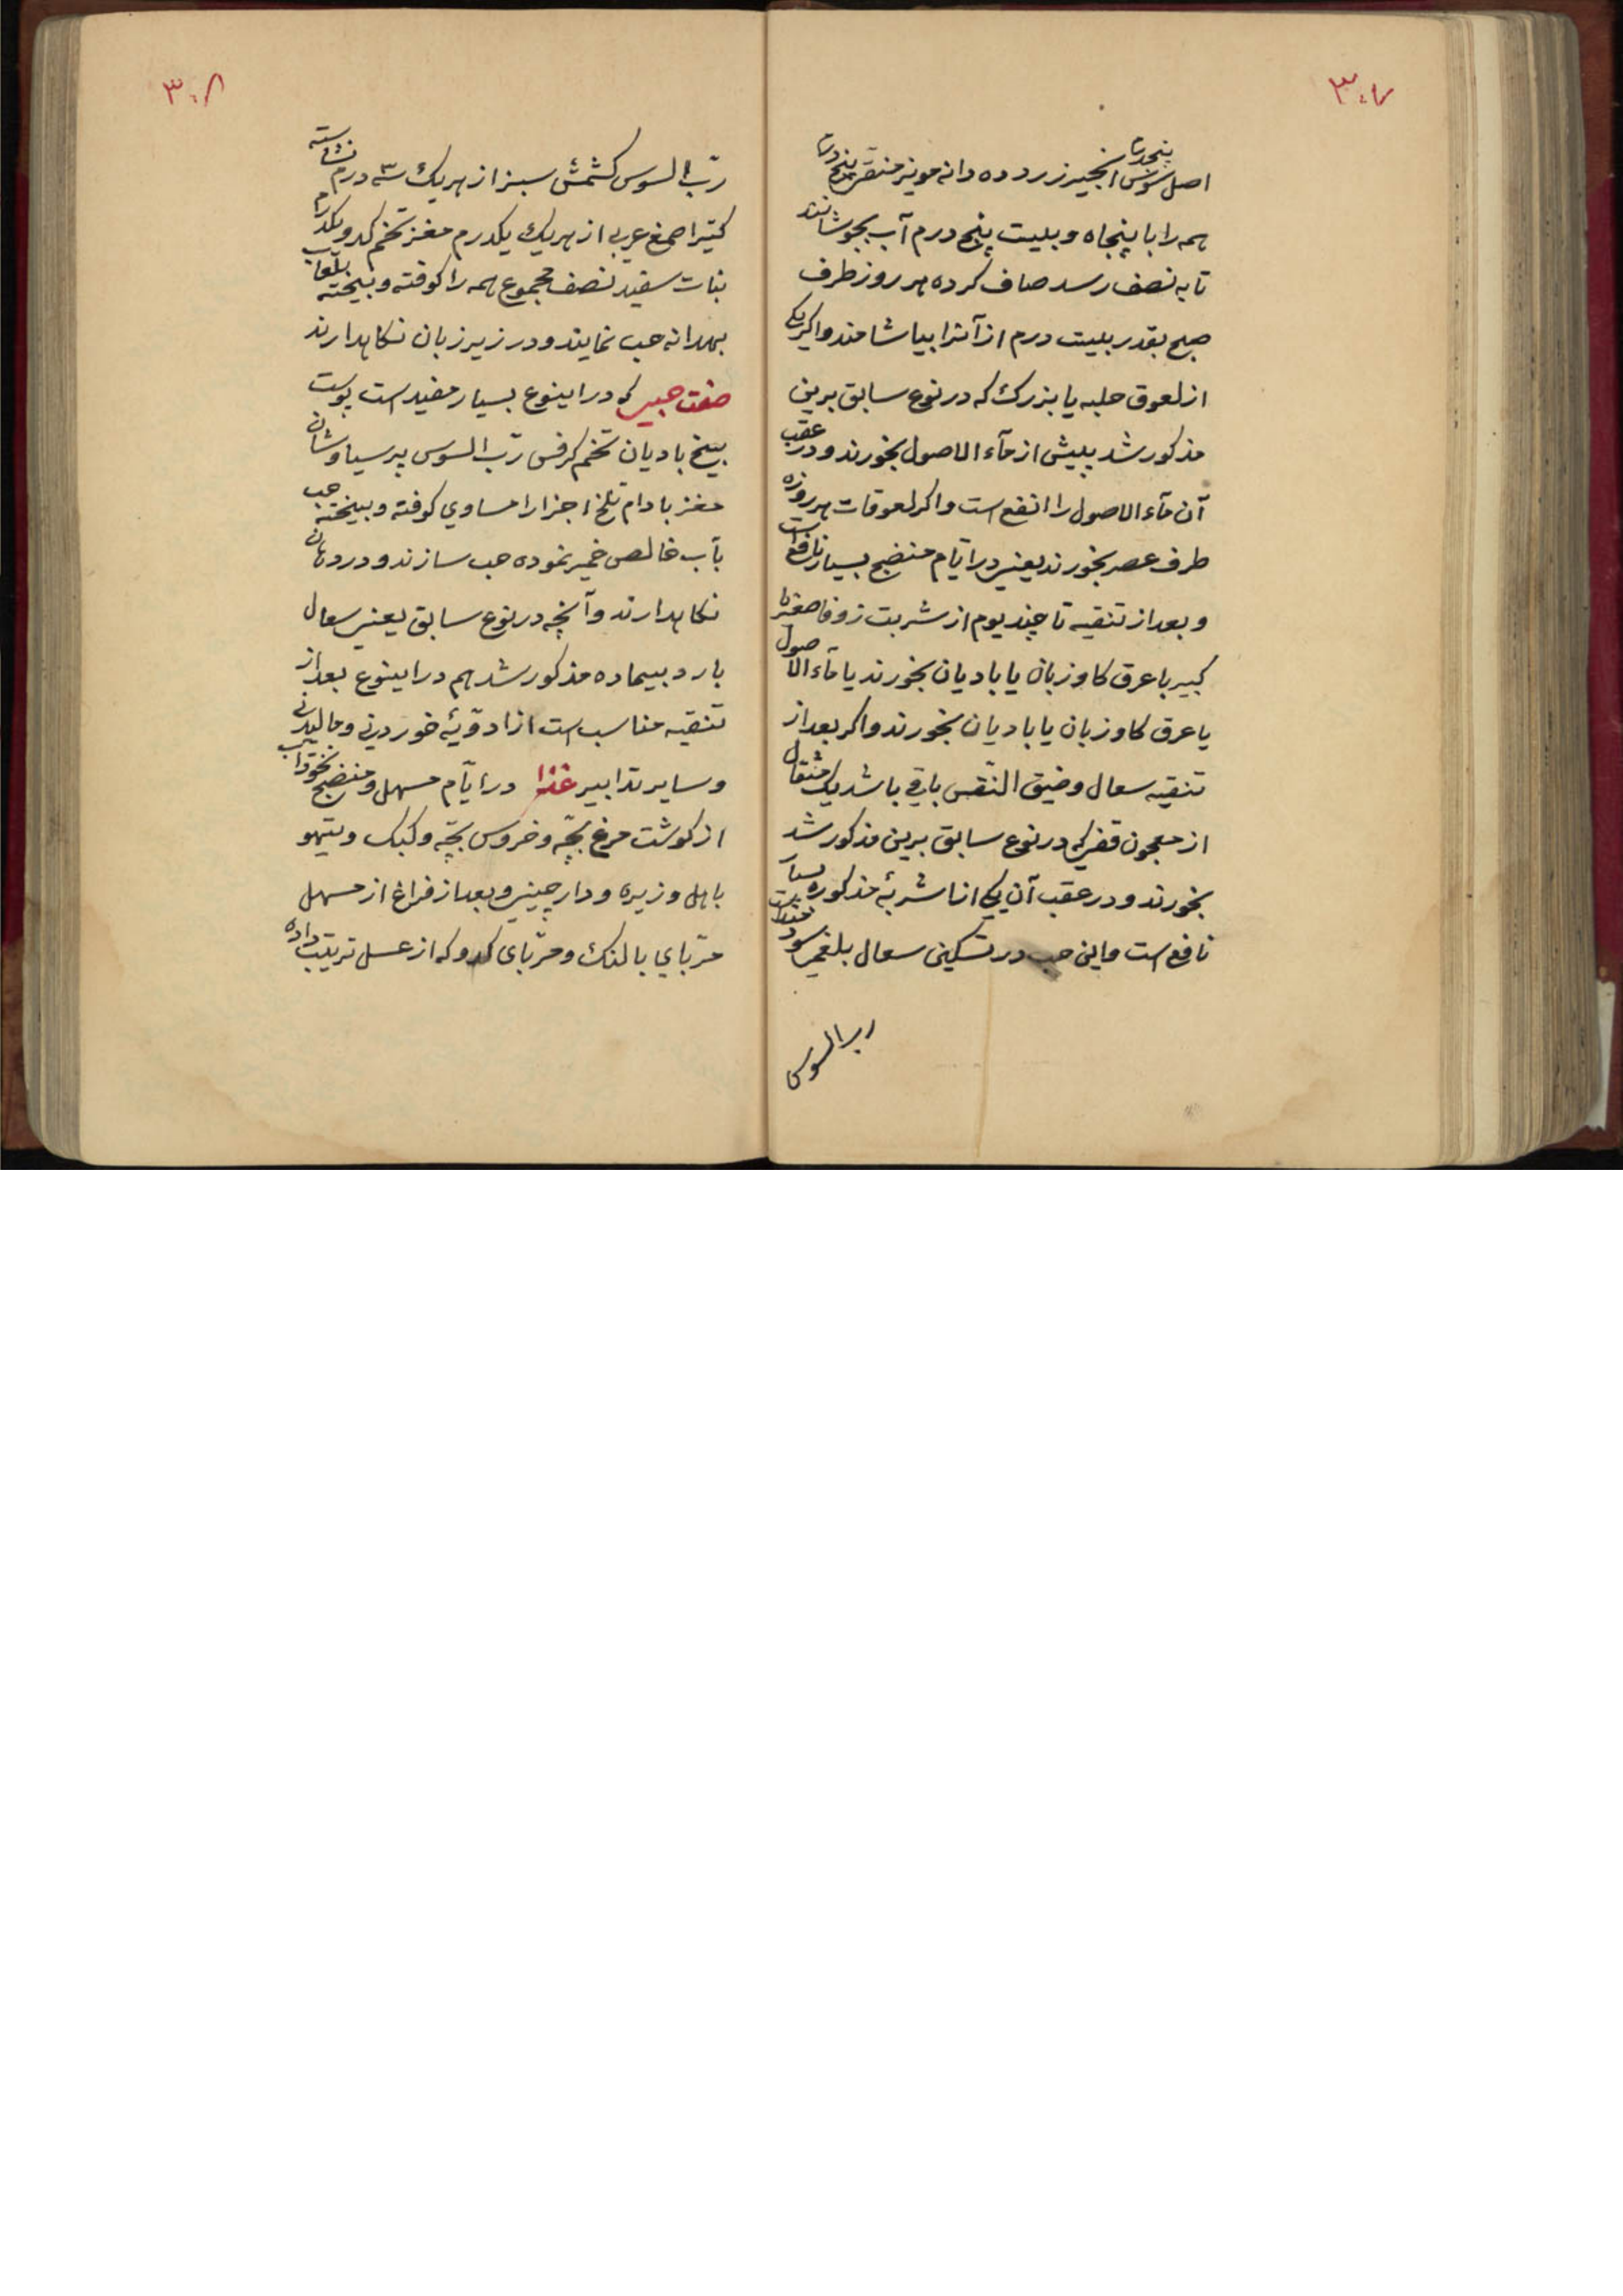 ۳۰۷
اصل سوس پنجدرم انجیر زرد ده دانه مویز منقی پنج درم
همه را با پنجاه و بیست پنج درم آب بجوشانند
تا به نصف رسد صاف کرده هر روز طرف
صبح بقدر بیست درم از آنرا بیاشامند و اکر یکی
از لعوق حلبه یا بزرک که در نوع سابق برین
مذکور شد پیش از مآء الاصول بخورند و در عقب
آن مآء الاصول را انفع است و اکر لعوقات هر روزه
طرف عصر بخورند یعنی در ایّام منضج بسیار نافع است
و بعد از تنقیه تا چند یوم از شربت زوفا صغیر یا
کبیر با عرق کاوزبان یا بادیان بخورند یا مآء الاصول
یا عرق کاوزبان یا بادیان بخورند و اکر بعد از
تنقیه سعال و ضیق النّفس باقی باشد یک مثقال
از معجون قفی که در نوع سابق برین مذکور شد
بخورند و در عقب آن یکی از اشربهٔ مذکوره بسیار
نافع است و این حب در تسکین سعال بلغمی سودمند است
رب السوس
۳۰۸
ربّ السوس کشمش سبز از هریک سه درم نشاسته
کتیرا صمغ عربی از هریک یکدرم مغز تخم کدو یکدرم
نبات سفید نصف مجموع همه را کوفته و بیخته بلعاب
بهدانه حب نمایند و در زیر زبان نکاهدارند
صفت حبی که در اینوع بسیار مفید است پوست
بیخ بادیان تخم کرفس ربّ السوس پرسیاوشان
مغز بادام تلخ اجزا را مساوی کوفته و بیخته حب
بآب خالص خمیر نموده حب سازند و در دهان
نکاهدارند و آنچه در نوع سابق یعنی سعال
بارد بیماده مذکور شد هم در اینوع بعد از
تنقیه مناسب است از ادویهٔ خوردنی و مالیدنی
و سایر تدابیر غذا در ایّام مسهل و منضج نخوداب
از کوشت مرغ بچّه و خروس بچّه و کبک و تیهو
با هل و زیره و دارچینی و بعد از فراغ از مسهل
مربّای بالنک و مربّای کدو که از عسل تربیت داده